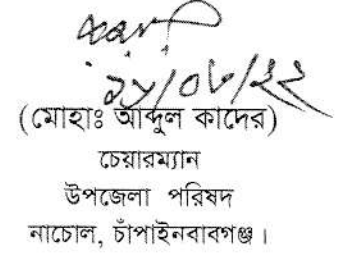 (মোহাঃ আব্দুল কাদের)
চেয়ারম্যান
উপজেলা পরিষদ
নাচোল, চাঁপাইনবাবগঞ্জ।